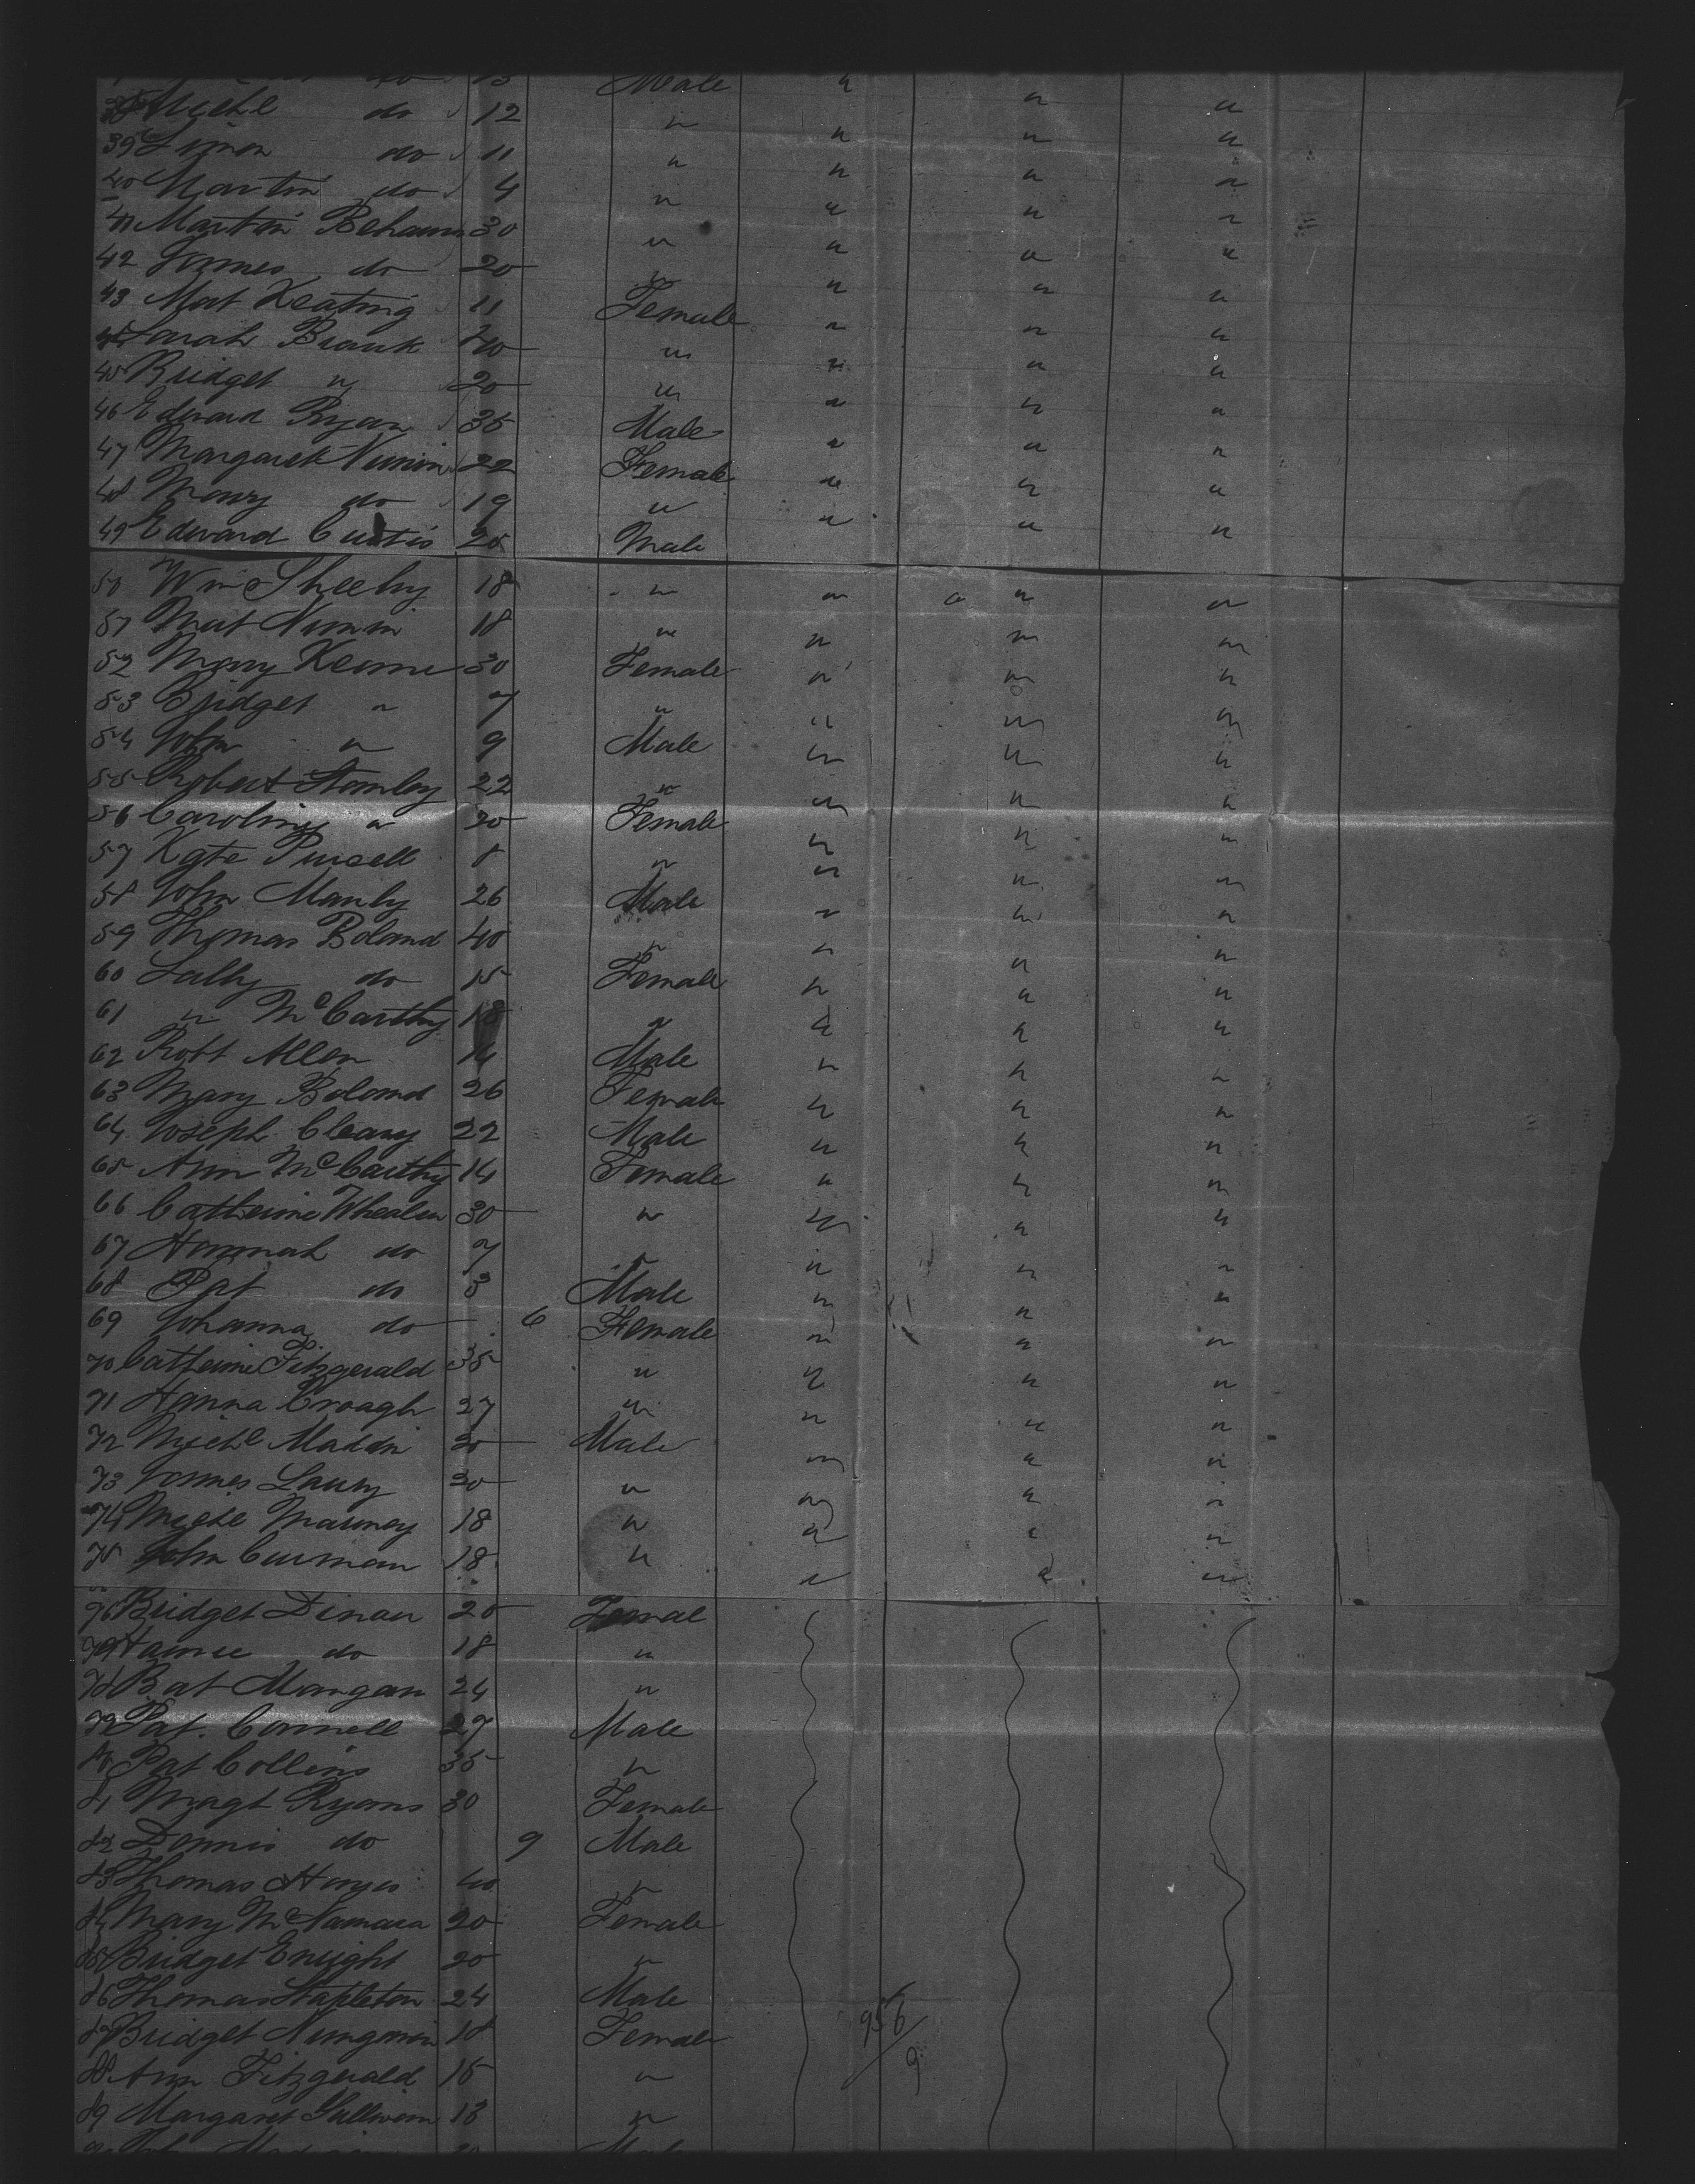 do 13 Male "
38 Michl do 12 " " " "
39 Simon do 11 " " " "
40 Martin do 4 " " " "
41 Martin 30 " " " "
42 James do 20 " " " "
43 Mat Keating 11 Female " " "
44 Sarah 40 " " " "
45 Bridget " 20 " " " "
46 Edward Ryan 35 Male " " "
47 Margaret 22 Female " " "
48 Mary do 19 " " " "
49 Edward Curtis 20 Male " " "
50 Wm Sheehy 18 " " " "
51 Mat 18 " " " "
52 Mary Keane 30 Female " " "
53 Bridget " 7 " " " "
54 John " 9 Male " " "
55 Robert Stanley 22 " " " "
56 Caroline " 20 Female " " "
57 Kate Pursell 8 " " " "
58 John Manly 26 Male " " "
59 Thomas Boland 40 " " " "
60 Sally do 15 Female " " "
61 " McCarthy 18 " " " "
62 Robt Allen 14 Male " " "
63 Mary Boland 26 Female " " "
64 Joseph Cleary 22 Male " " "
65 Ann McCarthy 14 Female " " "
66 Catherine Whealen 30 " " " "
67 Hannah do 7 " " " "
68 Pat do 3 Male " " "
69 Johanna do 6 Female " " "
70 Catherine Fitzgerald 35 " " " "
71 Hanna Croagh 27 " " " "
72 Michl Maddin 30 Male " " "
73 James 30 " " " "
74 Michl 18 " " " "
75 John Curman 18 " " " "
76 Bridget Dinan 20 Female
77 do 18 "
78 Bat Mangan 24 "
79 Pat. Connell 27 Male
80 Pat Collins 35 "
81 Magt Ryans 30 Female
82 Dennis do 9 Male
83 Thomas Hayes 40 "
84 Mary McNamara 20 Female
85 Bridget Enright 20 "
86 Thomas Stapleton 24 Male
87 Bridget 18 Female
956/9
88 Ann Fitzgerald 15 "
89 Margaret 13 "